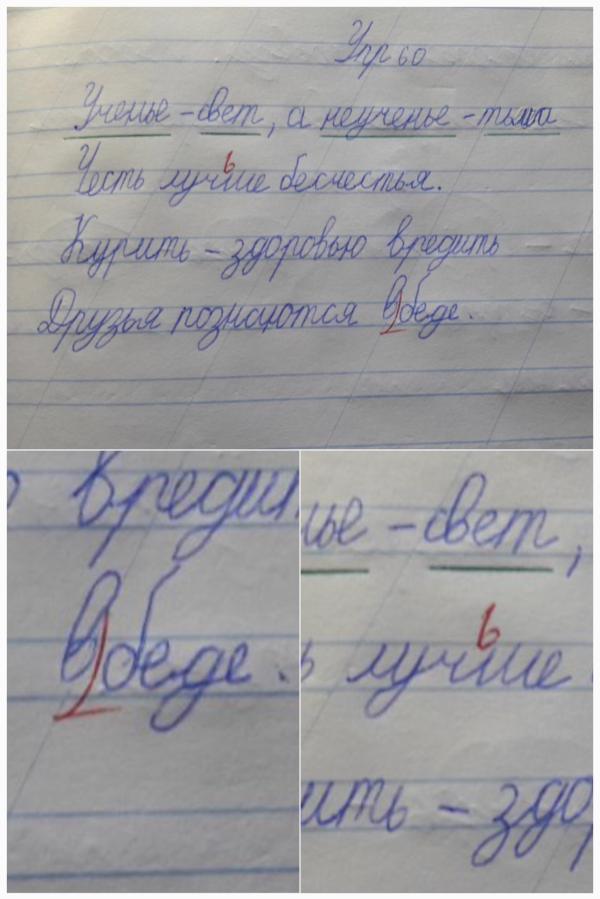 Упр 60
Ученье - свет, а неученье - тьма
Честь лучше бесчестья.
ь
Курить - здоровью вредить
Друзья познаются в беде.
вредит
в беде.
нье - свет,
ь
ь лучше
ить - здо